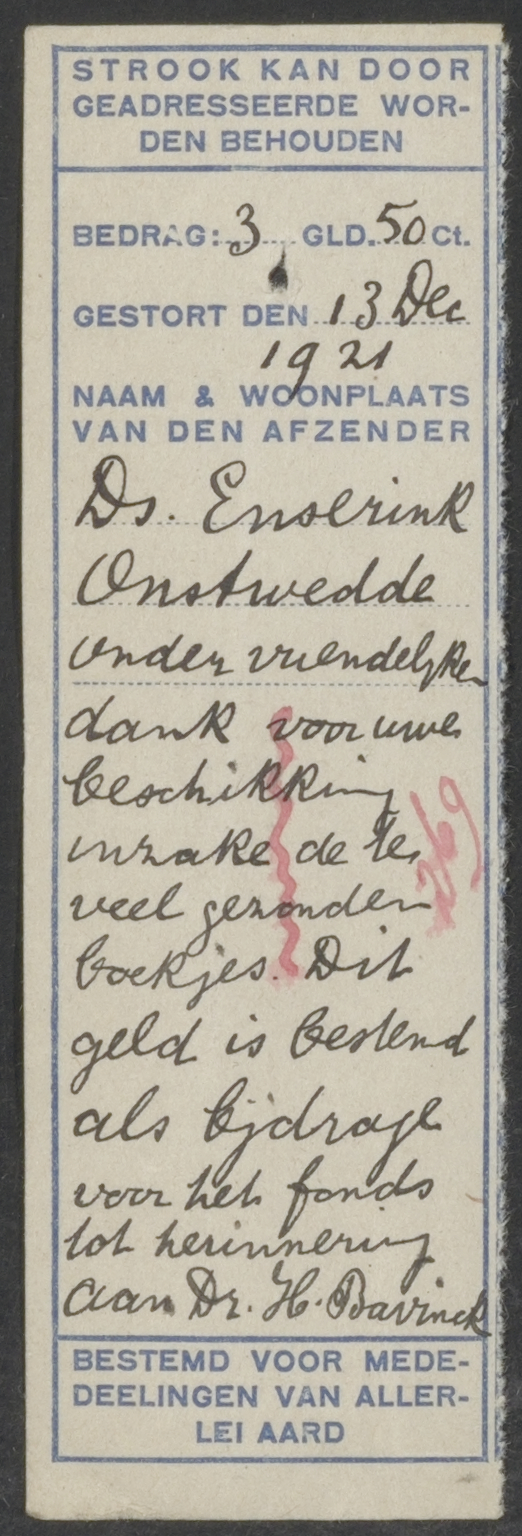 STROOK KAN DOOR
GEADRESSEERDE WOR-
DEN BEHOUDEN
BEDRAG: 3 GLD. 50 Ct.
GESTORT DEN 13 Dec
1921
NAAM & WOONPLAATS
VAN DEN AFZENDER
Ds. Enserink
Onstwedde
onder vriendelijken
dank voor uwe
beschikking
inzake de te
veel gezonden
boekjes. Dit
geld is bestemd
als bijdrage
voor het fonds
tot herinnering
aan Dr. H. Bavinck
BESTEMD VOOR MEDE-
DEELINGEN VAN ALLER-
LEI AARD